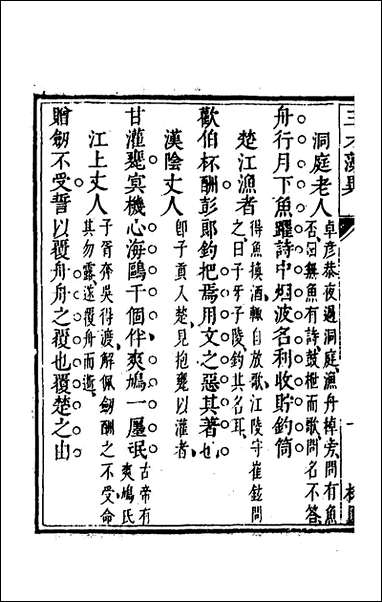 三才藻異
一
洞庭老人
卓彥恭夜過洞庭漁舟棹旁問有魚
否曰無魚有詩鼓枻而歌問名不答
舟行月下魚躍詩中烟波名利收貯釣筒
楚江漁者
得魚換酒輒自放歌江陵守崔鉉問
之曰子牙子陵釣其名耳
歡伯杯酬彭郎釣把焉用文之惡其著也
漢陰丈人
即子貢入楚見抱甕以灌者
甘灌甕冥機心海鷗千個伴爽鳩一廛氓
古帝有
爽鳩氏
江上丈人
子胥奔吳得渡解佩劔酬之不受命
其勿露遂覆舟而逝
贈劔不受誓以覆舟舟之覆也覆楚之山